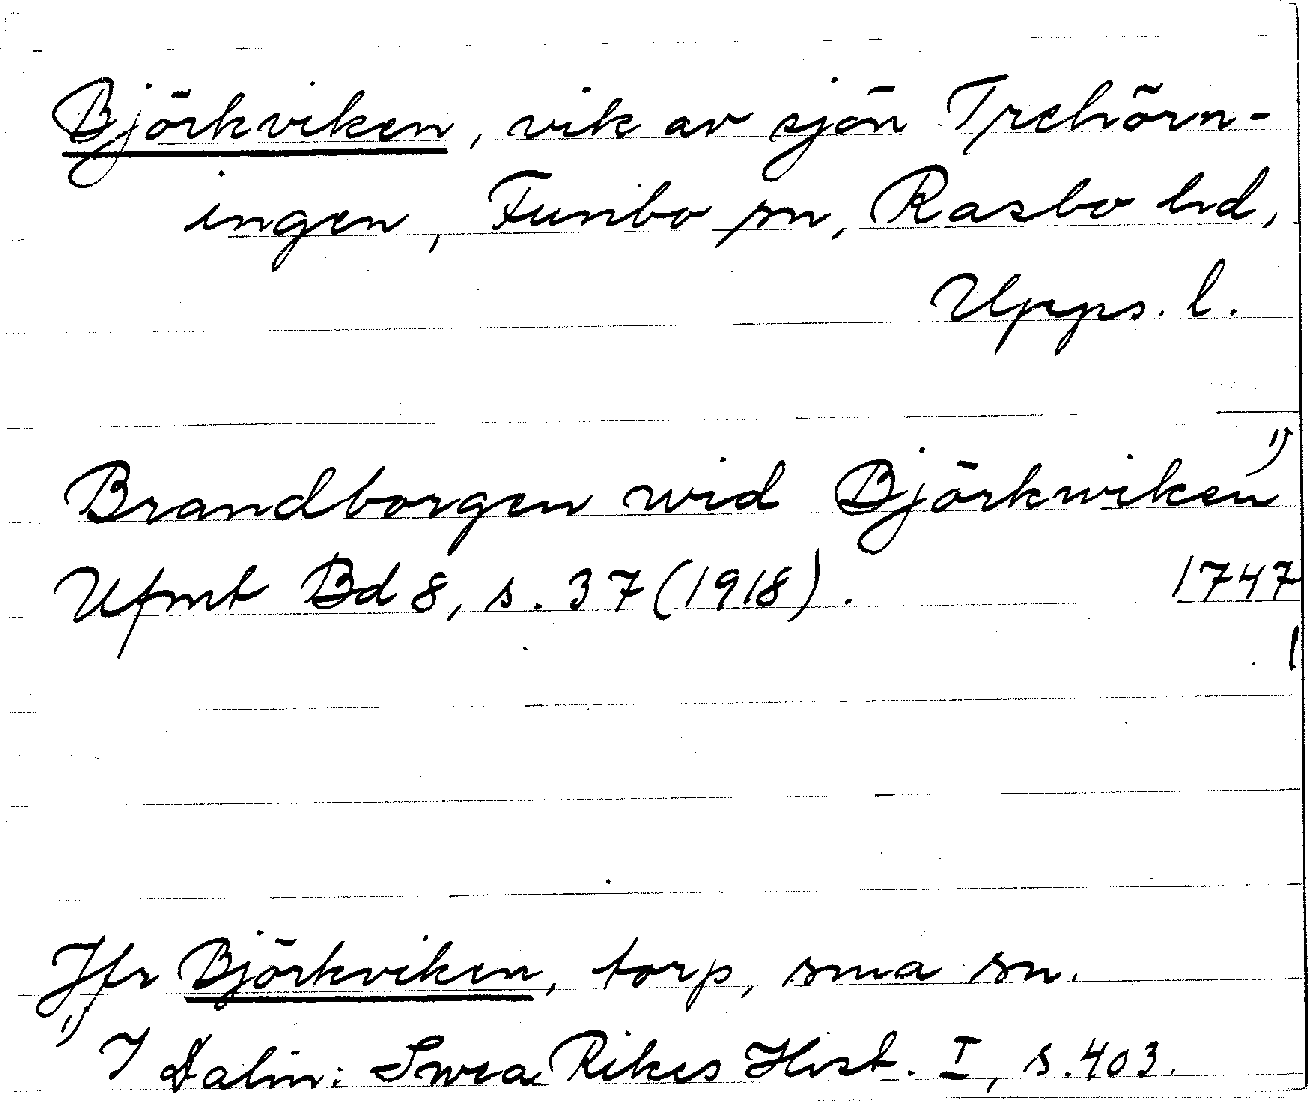 Björkviken, vik av sjön Trehörn-
ingen, Funbo sn, Rasbo hd,
Upps. l.
Brandborgen wid Björkwiken 1)
Ufmt Bd 8, s. 37 (1918). 1747
Jfr Björkviken, torp, sma sn.
1) I Dalin: Swea Rikes Hist. I, s. 403.